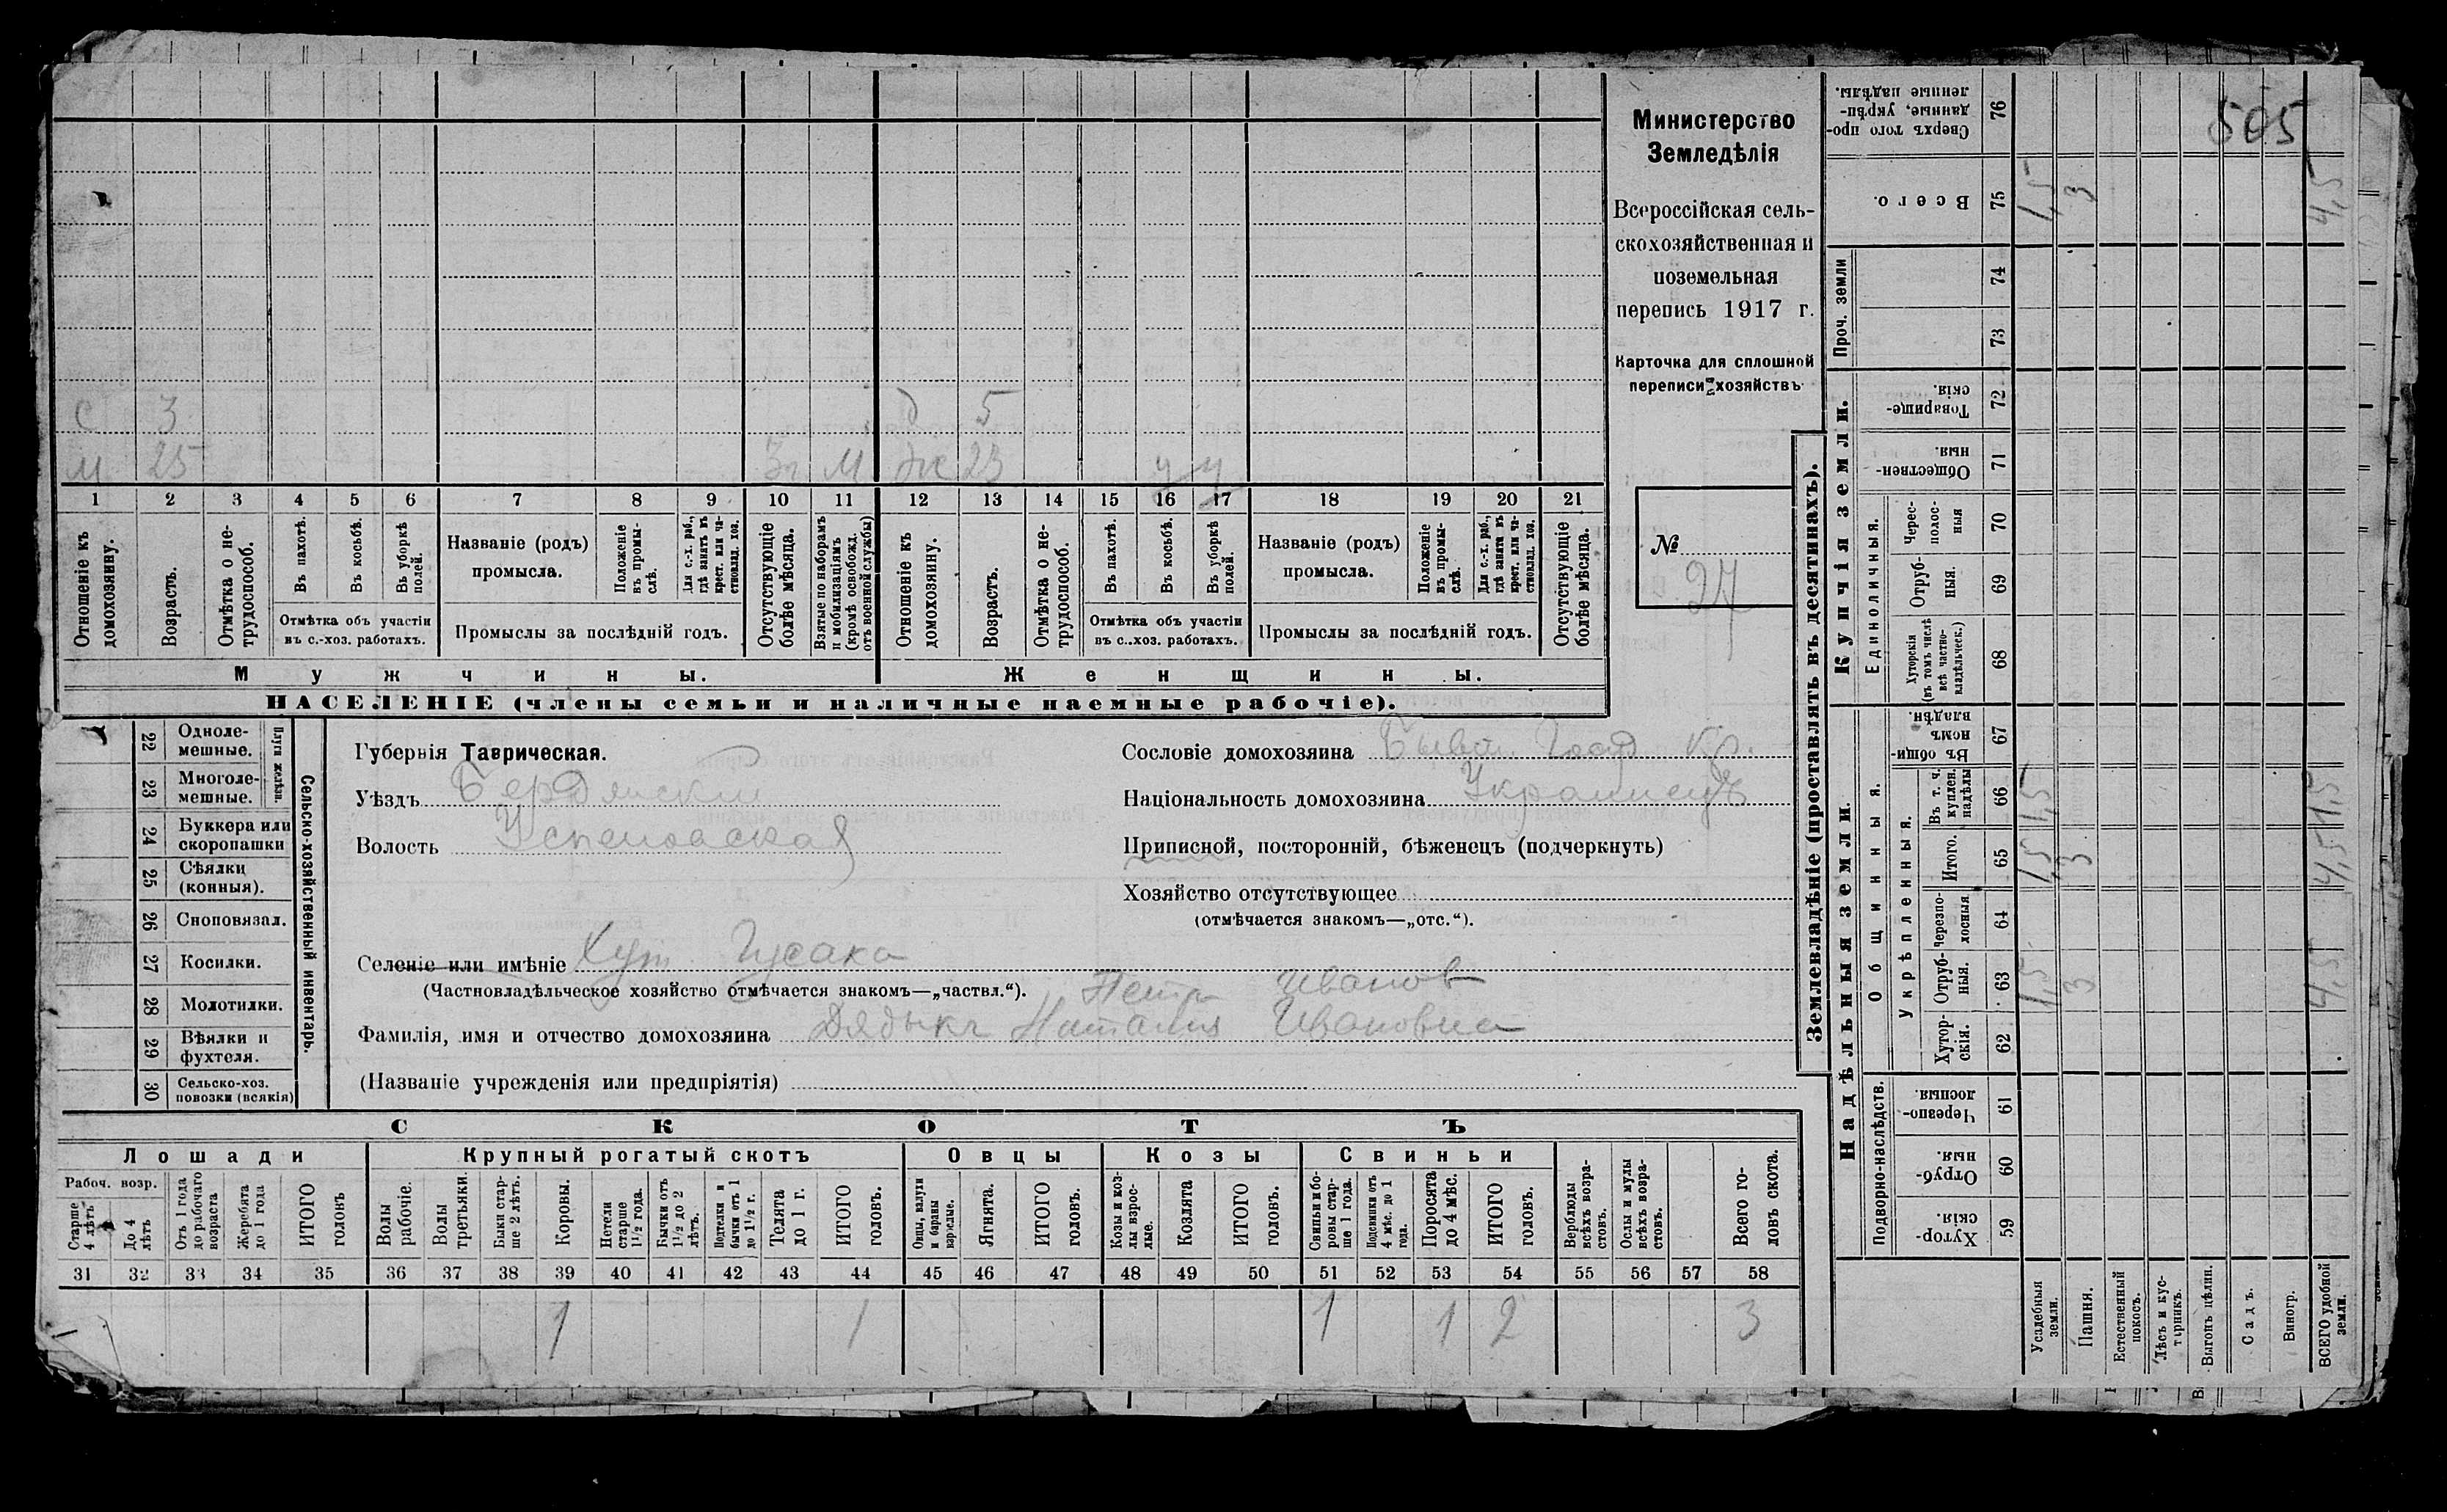 Министерство
Земледѣлія
Всероссійская сель-
скохозяйственная и
поземельная
перепись 1917 г.
Карточка для сплошной
переписи хозяйствъ
№
27
505
с 3 д 5
м 25 3г М ж 23 у у
1 2 3 4 5 6 7 8 9 10 11 12 13 14 15 16 17 18 19 20 21
Отношеніе къ домохозяину.
Возрастъ.
Отмѣтка о не-трудоспособ.
Въ пахотѣ.
Въ косьбѣ.
Въ уборкѣ полей.
Отмѣтка объ участіи
въ с.-хоз. работахъ.
Названіе (родъ)
промысла.
Положеніе въ промы-слѣ.
Для с.-х. раб., гдѣ занятъ въ крест. или ча-стновлад. хоз.
Промыслы за послѣдній годъ.
Отсутствующіе болѣе мѣсяца.
Взятые по наборамъ и мобилизаціямъ (кромѣ освобожд. отъ военной службы)
Отношеніе къ домохозяину.
Возрастъ.
Отмѣтка о не-трудоспособ.
Въ пахотѣ.
Въ косьбѣ.
Въ уборкѣ полей.
Отмѣтка объ участіи
въ с.-хоз. работахъ.
Названіе (родъ)
промысла.
Положеніе въ промы-слѣ.
Для с.-х. раб., гдѣ занята въ крест. или ча-стновлад. хоз.
Промыслы за послѣдній годъ.
Отсутствующіе болѣе мѣсяца.
Мужчины.
Женщины.
НАСЕЛЕНІЕ (члены семьи и наличные наемные рабочіе).
22 Одноле-мешные.
23 Многоле-мешные.
Плуги желѣзн.
24 Буккера или скоропашки
25 Сѣялки (конныя).
26 Сноповязал.
27 Косилки.
28 Молотилки.
29 Вѣялки и фухтеля.
30 Сельско-хоз. повозки (всякія)
Сельско-хозяйственный инвентарь.
Губернія Таврическая.
Уѣздъ Бердянскій
Волость Успеновская
Селеніе или имѣніе Хут. Гусака
(Частновладѣльческое хозяйство отмѣчается знакомъ—„частвл.“).
Петр Иванов
Фамилія, имя и отчество домохозяина Дядыкъ Наталия Ивановна
(Названіе учрежденія или предпріятія)
Сословіе домохозяина Бывш. Госуд Кр.
Національность домохозяина Украинецъ
Приписной, посторонній, бѣженецъ (подчеркнуть)
Хозяйство отсутствующее
(отмѣчается знакомъ—„отс.“).
СКОТЪ
Лошади
Крупный рогатый скотъ
Овцы
Козы
Свиньи
Рабоч. возр.
Старше 4 лѣтъ
До 4 лѣтъ
Отъ 1 года до рабочаго возраста
Жеребята до 1 года
ИТОГО головъ
Волы рабочіе.
Волы третьяки.
Быки стар-ше 2 лѣтъ.
Коровы.
Нетели старше 1½ года.
Бычки отъ 1½ до 2 лѣтъ.
Подтелки и бычки отъ 1 до 1½ г.
Телята до 1 г.
ИТОГО головъ.
Овцы, валухи и бараны взрослые.
Ягнята.
ИТОГО головъ.
Козы и коз-лы взрос-лые.
Козлята
ИТОГО головъ.
Свиньи и бо-ровы стар-ше 1 года.
Подсвинки отъ 4 мѣс. до 1 года.
Поросята до 4 мѣс.
ИТОГО головъ.
Верблюды всѣхъ возра-стовъ.
Ослы и мулы всѣхъ возра-стовъ.
Всего го-ловъ скота.
31 32 33 34 35 36 37 38 39 40 41 42 43 44 45 46 47 48 49 50 51 52 53 54 55 56 57 58
1 1 1 1 2 3
Землевладѣніе (проставлять въ десятинахъ).
Надѣльныя земли.
Купчія земли.
Проч. земли
Подворно-наслѣдств.
Общинныя.
Укрѣпленныя.
Единоличныя.
Хутор-скія. 59
Отруб-ныя. 60
Черезпо-лосныя 61
Хутор-скія. 62
Отруб-ныя. 63
Черезпо-лосныя 64
Итого. 65
Въ т. ч. куплен. надѣлы 66
Въ общин-номъ владѣн. 67
Хуторскія (въ томъ числѣ всѣ частно-владѣльческ.) 68
Отруб-ныя. 69
Черес-полос-ныя 70
Обществен-ныя. 71
Товарище-скія. 72
73
74
Всего. 75
Сверхъ того про-данные, укрѣп-ленные надѣлы. 76
Усадебныя земли. 1,5 1,5 1,5 1,5
Пашня. 3 3 3
Естественный покосъ.
Лѣсъ и кус-тарникъ.
Выгонъ цѣлин.
Садъ.
Виногр.
ВСЕГО удобной земли. 4,5 4,5 1,5 4,5